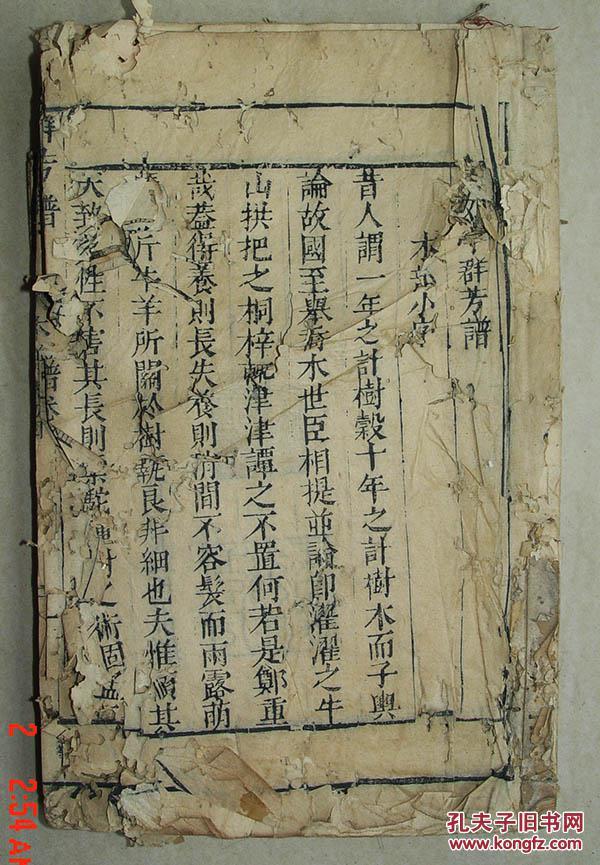 如亭群芳譜
木部小序
昔人謂一年之計樹穀十年之計樹木而子輿
論故國至舉喬木世臣相提並論即濯濯之牛
山拱把之桐梓輒津津譚之不置何若是鄭重
哉蓋得養則長失養則消間不容髮而雨露萌
斤牛羊所關於樹執良非細也夫惟順其
天致其性不害其長則橐駝種樹之術固
群芳譜
2 2:54 AM
孔夫子旧书网
www.kongfz.com